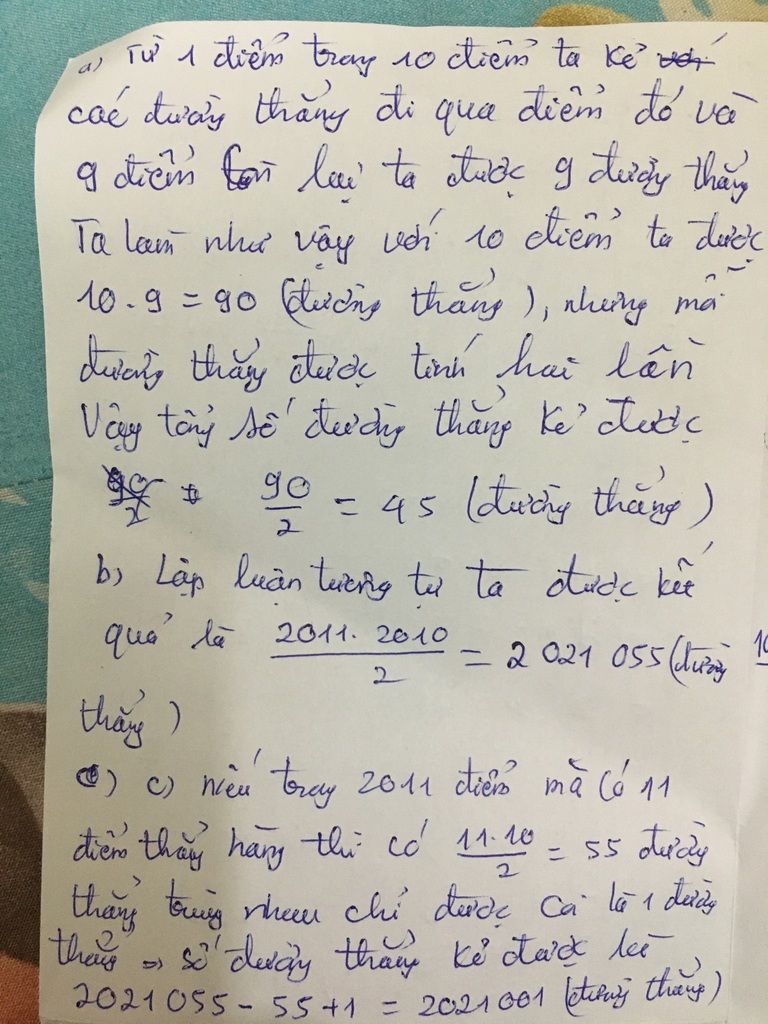 a) Từ 1 điểm trong 10 điểm ta kẻ với
các đường thẳng đi qua điểm đó và
9 điểm còn lại ta được 9 đường thẳng
Ta làm như vậy với 10 điểm ta được
10.9 = 90 (đường thẳng), nhưng mỗi
đường thẳng được tính hai lần
Vậy tổng số đường thẳng kẻ được
90/2 = 45 (đường thẳng)
b) Lập luận tương tự ta được kết
quả là 2011.2010/2 = 2 021 055 (đường
thẳng)
c) nếu trong 2011 điểm mà có 11
điểm thẳng hàng thì có 11.10/2 = 55 đường
thẳng trùng nhau chỉ được coi là 1 đường
thẳng => số đường thẳng kẻ được là
2021055 - 55 + 1 = 2021001 (đường thẳng)